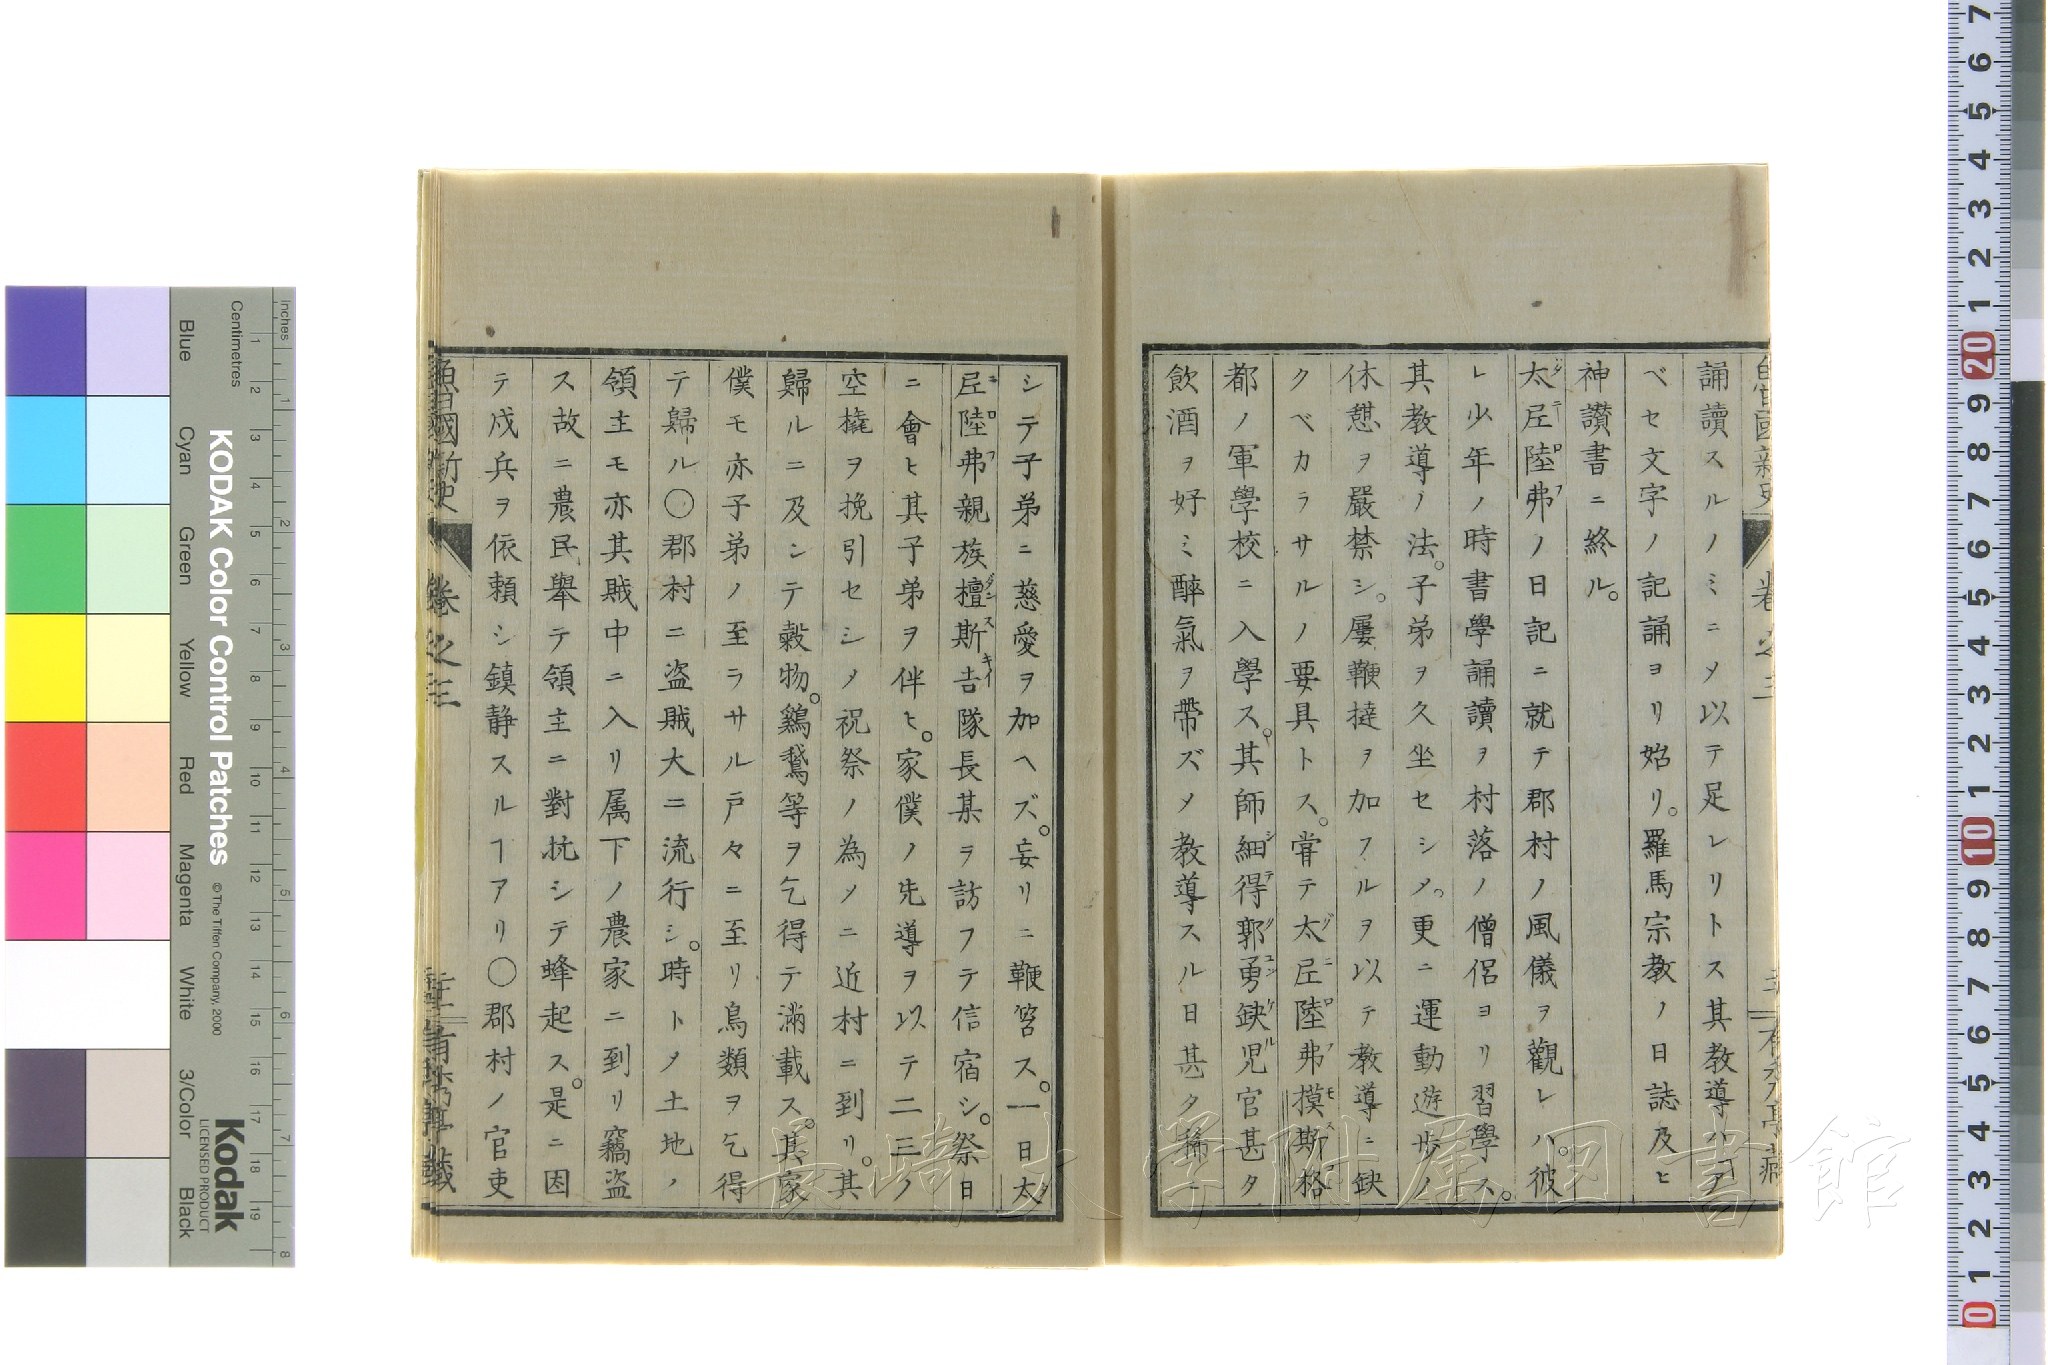 誦讀スルノミニメ以テ足レリトス其教導ハア
ベセ文字ノ記誦ヨリ始リ。羅馬宗教ノ日誌及ヒ
神讃書ニ終ル。
太尼陸弗ノ日記ニ就テ郡村ノ風儀ヲ觀レハ。彼
レ少年ノ時書學誦讀ヲ村落ノ僧侶ヨリ習學ス。
其教導ノ法。子弟ヲ久坐セシメ。更ニ運動遊歩ノ
休憩ヲ嚴禁シ。屢鞭撻ヲ加フルヲ以テ教導ニ缺
クベカラサルノ要具トス。甞テ太尼陸弗摸斯格
都ノ軍學校ニ入學ス。其師細得郭勇鈌児官甚タ
飲酒ヲ好ミ醉氣ヲ帶ズメ教導スル日甚タ稀ニ
シテ子弟ニ慈愛ヲ加ヘズ。妄リニ鞭笞ス。一日太
尼陸弗親族檀斯吉隊長某ヲ訪フテ信宿シ。祭日
ニ會ヒ其子弟ヲ伴ヒ。家僕ノ先導ヲ以テ二三ノ
空橇ヲ挽引セシメ祝祭ノ為メニ近村ニ到リ。其
歸ルニ及ンテ穀物。鷄鵞等ヲ乞得テ滿載ス。其家
僕モ亦子弟ノ至ラサル戸々ニ至リ鳥類ヲ乞得
テ歸ル〇郡村ニ盗賊大ニ流行シ。時トメ土地ノ
領主モ亦其賊中ニ入リ属下ノ農家ニ到リ竊盗
ス故ニ農民擧テ領主ニ對抗シテ蜂起ス。是ニ因
テ戍兵ヲ依頼シ鎮静スルヿアリ〇郡村ノ官吏
魯國新史
卷之三
KODAK Color Control Patches
© The Tiffen Company, 2000
Kodak
LICENSED PRODUCT
Centimetres
Inches
Blue
Cyan
Green
Yellow
Red
Magenta
White
3/Color
Black
長崎大学附属図書館